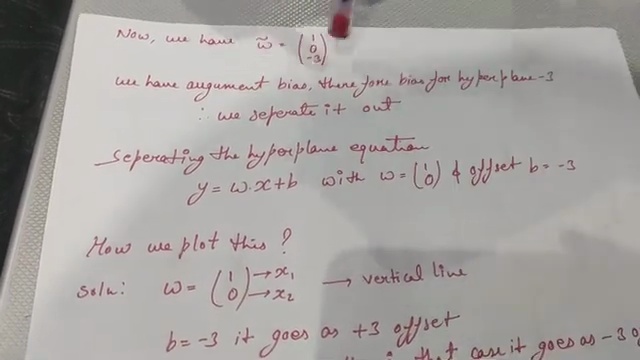 Now, we have w̃ = (1 0 -3)
we have augument bias, therefore bias for hyperplane -3
∴ we seperate it out
Seperating the hyperplane equation
y = w.x + b with w = (1 0) & offset b = -3
How we plot this?
Soln: w = (1 0) → x1 → x2 → vertical line
b = -3 it goes as +3 offset
that case it goes as -3